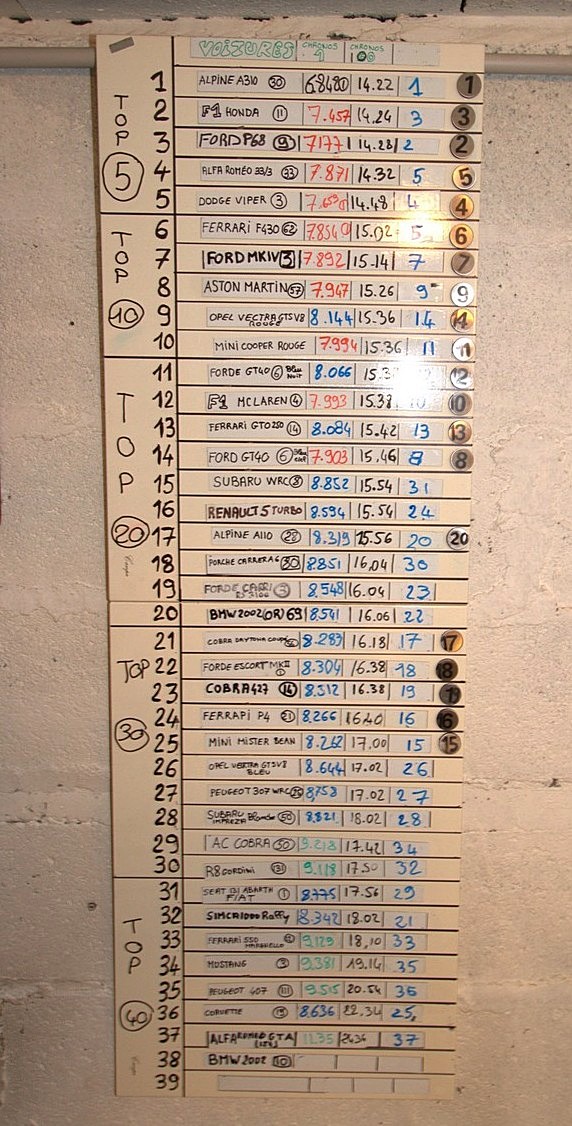 VOITURES CHRONOS 1 CHRONOS 100
TOP 5
1 ALPINE A310 30 68480 14.22 1 1
2 F1 HONDA 11 7.457 14.24 3 3
3 FORD P68 9 7177 14.28 2 2
4 ALFA ROMÉO 33/3 33 7.871 14.32 5 5
5 DODGE VIPER 3 14.48 4 4
TOP 10
6 FERRARI F430 62 7.854 15.02 5 6
7 FORD MKIV 3 7.892 15.14 7 7
8 ASTON MARTIN 57 7.947 15.26 9 9
9 OPEL VECTRA GTS V8 ROUGE 8.144 15.36 14 14
10 MINI COOPER ROUGE 7.994 15.36 11 11
TOP 20
11 FORDE GT40 6 Bleu Nuit 8.066 12
12 F1 MCLAREN 4 7.993 15.38 10 10
13 FERRARI GTO250 14 8.084 15.42 13 13
14 FORD GT40 6 7.903 15.46 8 8
15 SUBARU WRC 8 8.852 15.54 31
16 RENAULT 5 TURBO 8.594 15.54 24
17 ALPINE A110 28 8.319 15.56 20 20
18 PORCHE CARRERA 6 30 8.851 16.04 30
19 FORDE CAPRI 3 8.548 16.04 23
20 BMW2002(OR) 69 8.541 16.06 22
TOP 30
21 COBRA DAYTONA COUPE 8.283 16.18 17 17
22 FORDE ESCORT MKII 8.304 16.38 18 18
23 COBRA 427 14 8.312 16.38 19 19
24 FERRARI P4 21 8.266 16.40 16 16
25 MINI MISTER BEAN 8.262 17.00 15 15
26 OPEL VECTRA GTS V8 BLEU 8.644 17.02 26
27 PEUGEOT 307 WRC 8,753 17.02 27
28 SUBARU IMPREZA 8.821 18.02 28
29 AC COBRA 50 9.218 17.42 34
30 R8 GORDINI 9.118 17.50 32
TOP 40
31 SEAT 131 ABARTH FIAT 1 8.775 17.56 29
32 SIMCA1000 Raffy 8.342 18.02 21
33 FERRARI 550 MARANELLO 9.129 18,10 33
34 MUSTANG 9.381 19.14 35
35 PEUGEOT 407 9.515 20.54 36
36 CORVETTE 8.636 22.34 25
37 ALFA ROMEO GTA 11.35 2436 37
38 BMW 2002 10
39